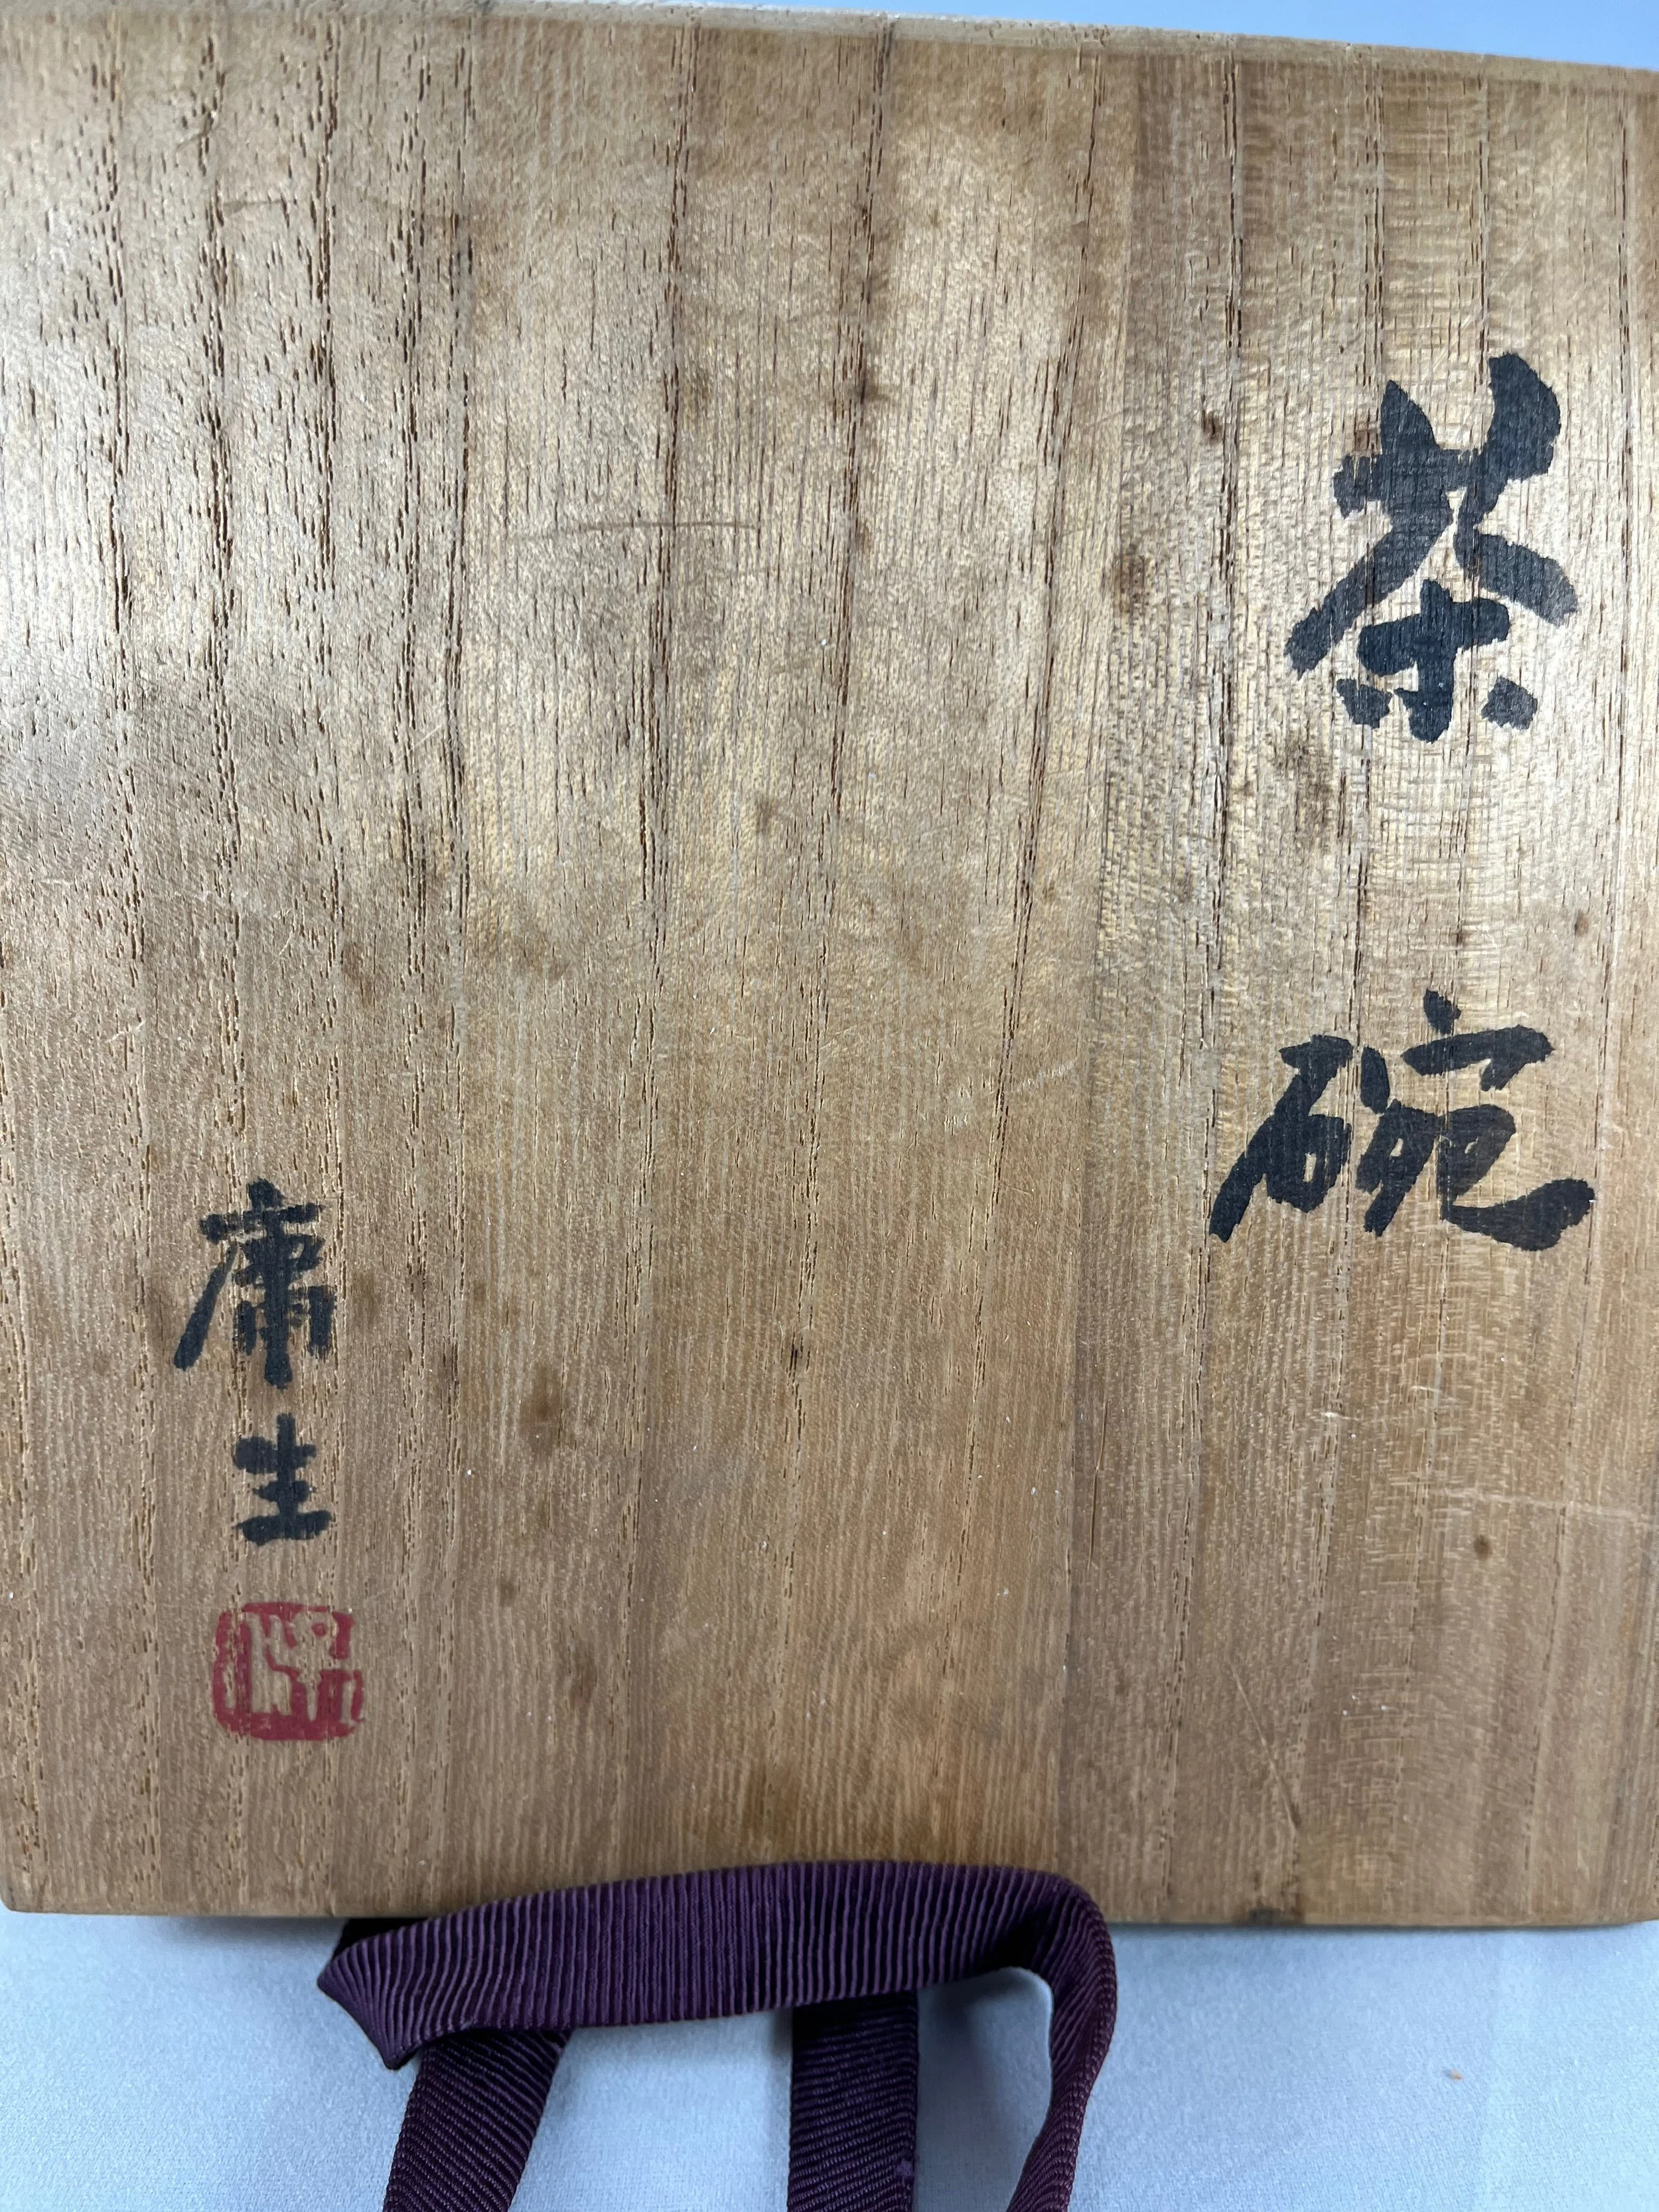 茶碗
庸生